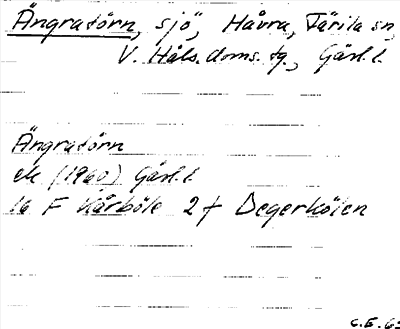 Ängratörn, sjö, Håvra, Färila sn,
V. Häls. doms. tg., Gävl. l.
Ängratörn
ek (1960) Gävl. l.
16 F Kårböle 2 f Degerkölen
C.E. 6